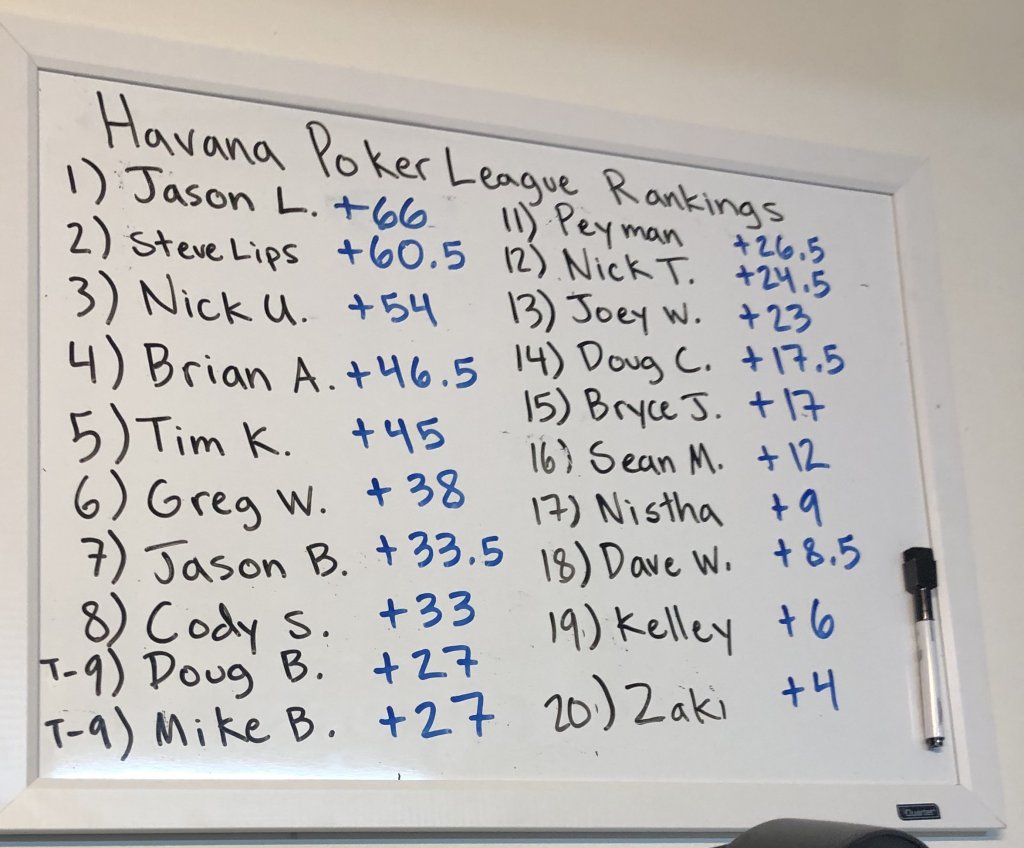 Havana Poker League Rankings
1) Jason L. +66
2) Steve Lips +60.5
3) Nick U. +54
4) Brian A. +46.5
5) Tim K. +45
6) Greg W. +38
7) Jason B. +33.5
8) Cody S. +33
T-9) Doug B. +27
T-9) Mike B. +27
11) Peyman +26.5
12) Nick T. +24.5
13) Joey W. +23
14) Doug C. +17.5
15) Bryce J. +17
16) Sean M. +12
17) Nistha +9
18) Dave W. +8.5
19.) Kelley +6
20.) Zaki +4
Quartet